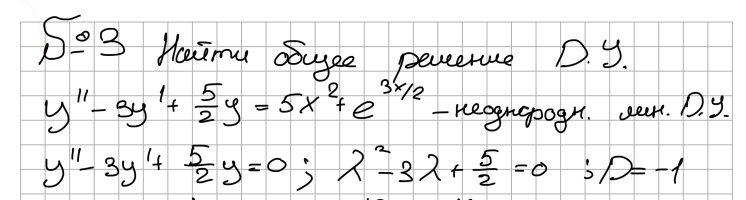 №3 Найти общее решение D.У.
y'' - 3y' + 5/2 y = 5x² + e^(3x/2) - неоднародн. лин. D.У.
y'' - 3y' + 5/2 y = 0 ; λ² - 3λ + 5/2 = 0 ; D = -1